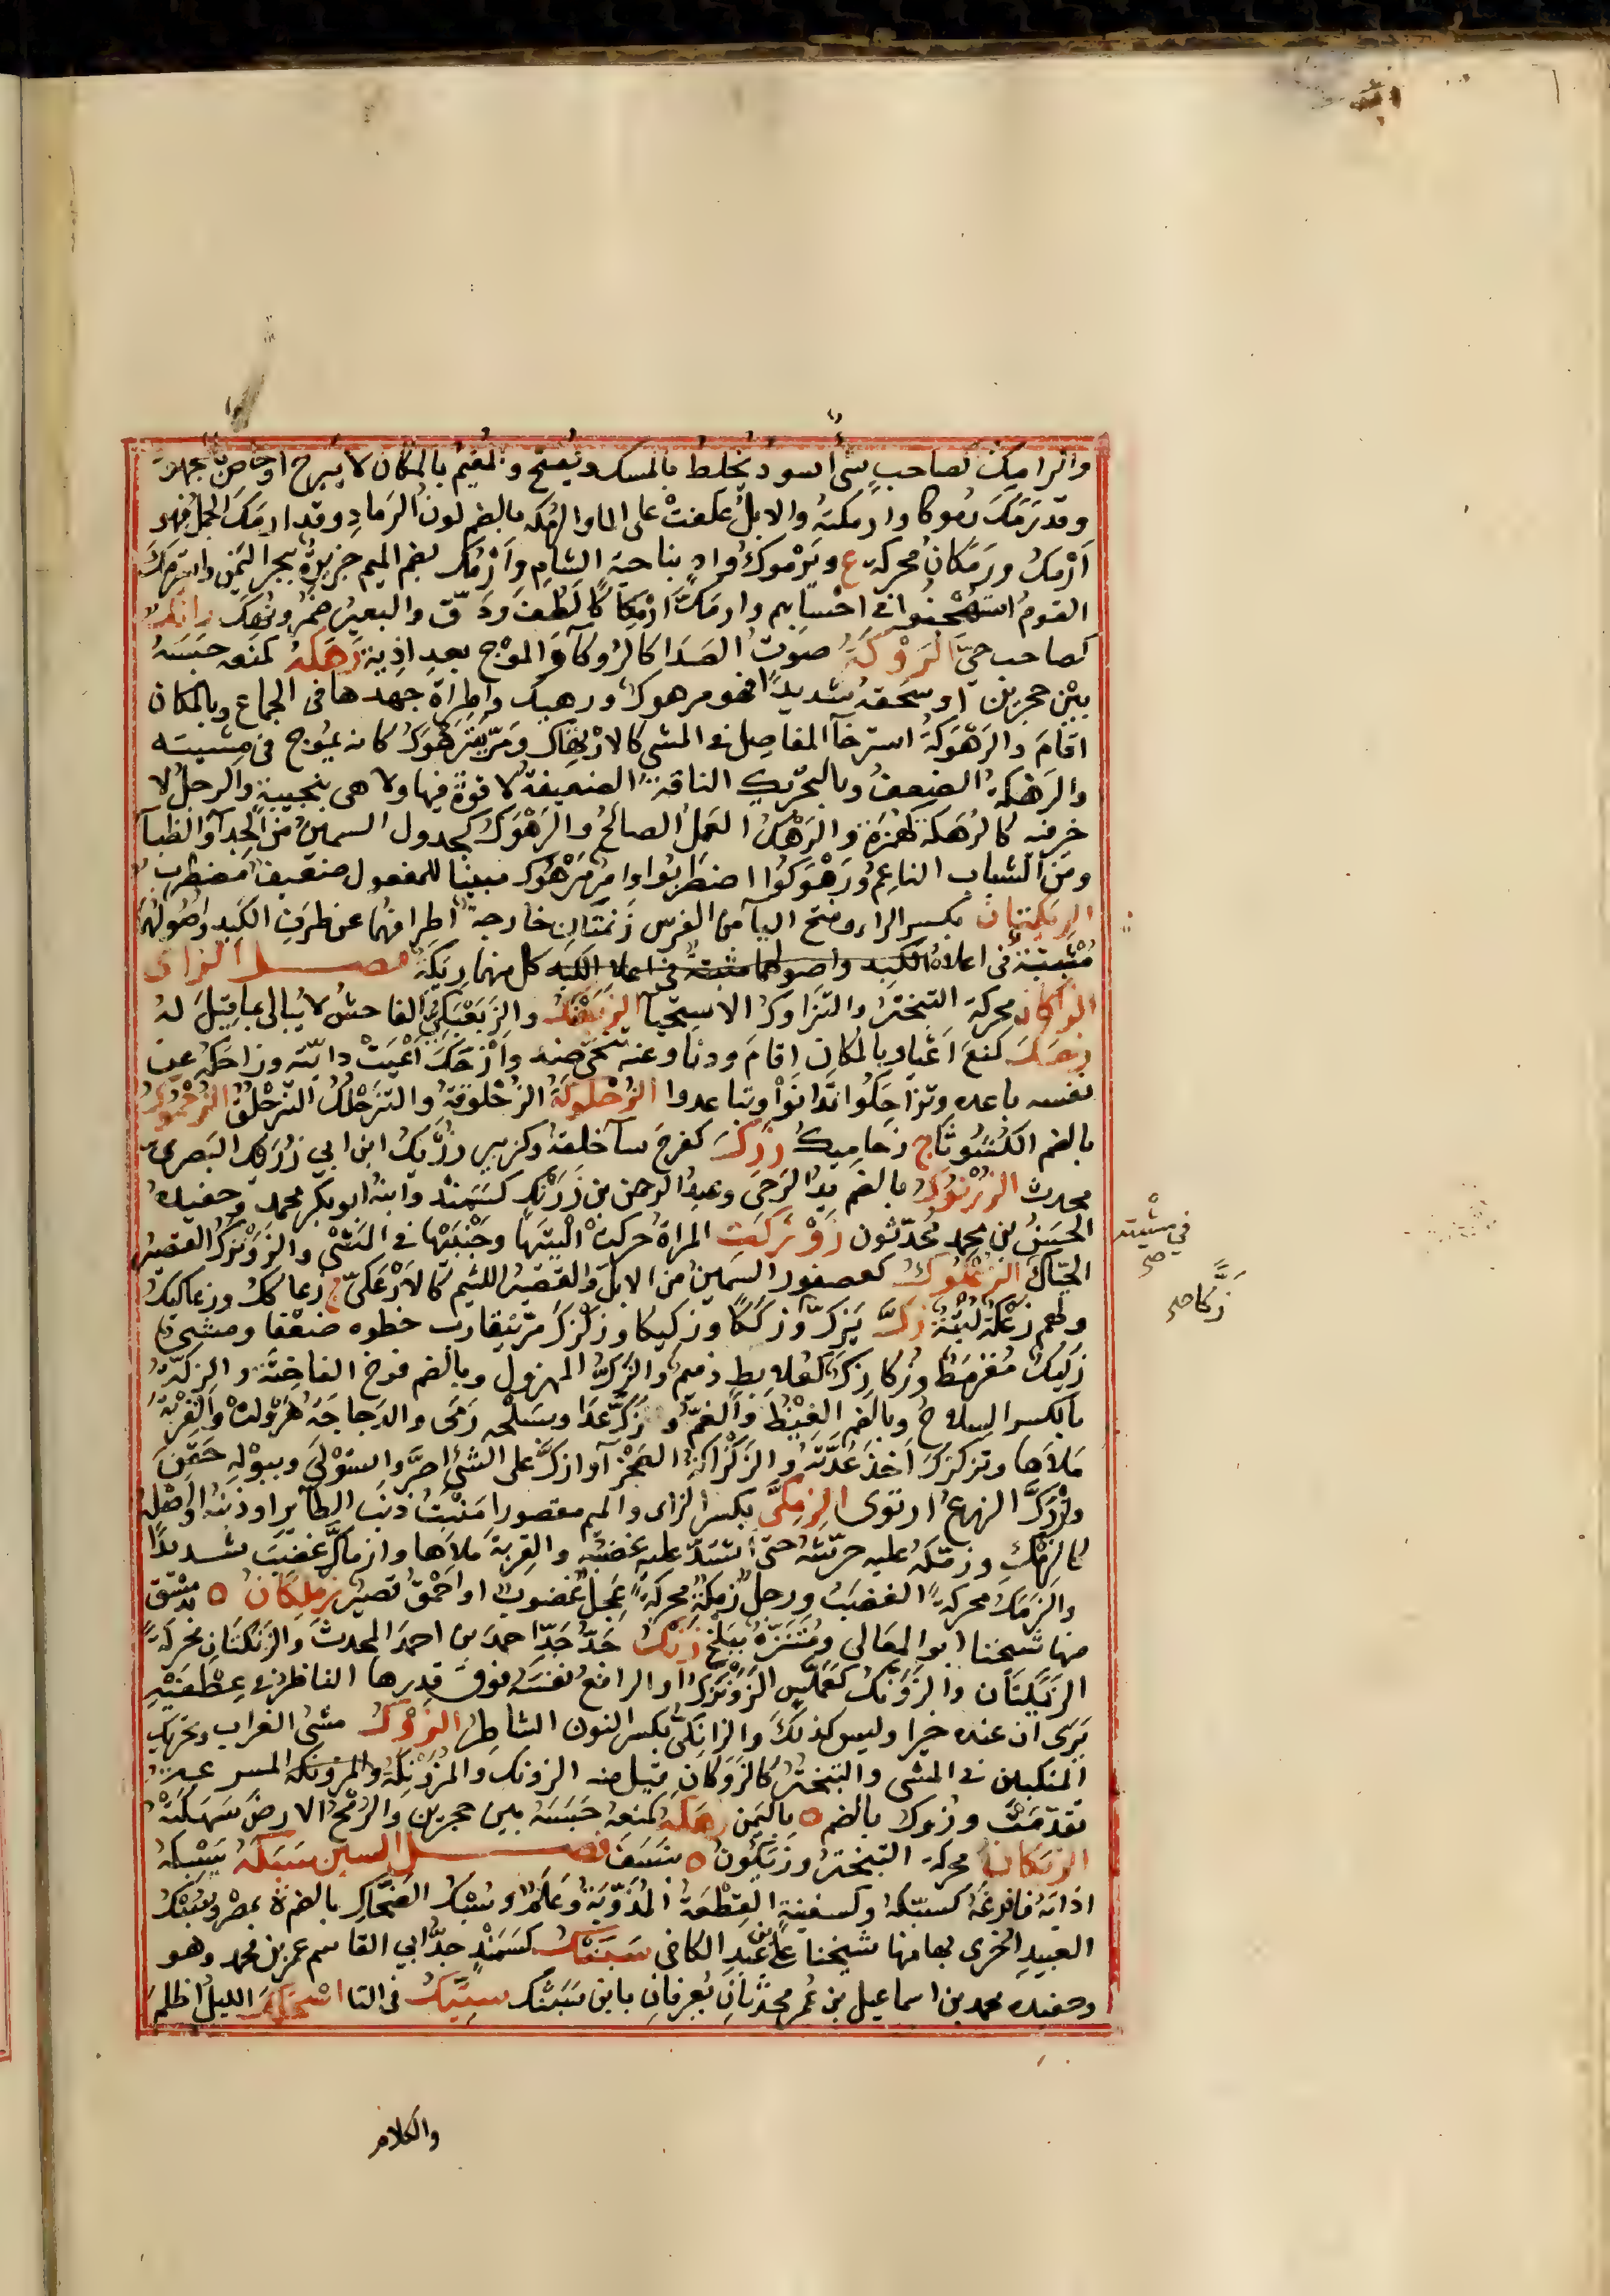 والرامِك كصاحبٍ شئ أسود يخلط بالمسك ويُفتح والمقيم بالمكان لا يبرح او خاص بجهة
وقد رَمَكَ رموكا وارمكته والابلُ عكفت على الما والرُمكه بالضم لونُ الرمادِ وقد ارمكَ الجملُ فهو
أرْمَكُ ورَمَكانُ محركة ع ويَرْموكُ وادٍ بناحية الشام وأرمُك بضم الميم جزيرةٌ ببحر اليمن واسترمك
القومُ استُهْجنوا في احسابهم وارمَكَّ ارْمِكاكا لَطُفَ ودَقّ والبعير ضمر ونُهِكَ رانك
كصاحب حىٌّ الرَوْكَةُ صوتُ الصَدا كالرَوكآ والموْج بعد اذية رَهَكَهُ كمنعه حبسه
بين حجرين او سَحَقه شديدًا فهو مرهوك ورهيك والمراةَ جهدها في الجماع وبالمكان
اقام والرَهْوَكةُ استرخآ المفاصل في المشى كالارتهاك ومَرّ يَترَهوَك كانه يموج في مشيته
والرَهْكة الضعفُ وبالتحريك الناقة الضعيفة لا قوة فيها ولا هى بنجيبة والرجلُ لا
خير فيه كالرُهَكة كهُمَزة والرَهْك العمل الصالحُ والرَهْوَك كجدول السمين من الجدآ والظبآ
ومن الشباب الناعمُ ورَهْوَكوا اضطربوا وامر مُرَهْوَك مبينا للمفعول ضعيف مضطرب
الريكتان بكسر الراء وفتح اليآ من الفرس زنمتان خارجة اطرافهما عن طرف الكبد واصولهما
مُثْبَتة في اعلا الكَبِد واصولهما مثبتة في اعلا الكبد كل منهما رِيَكَة فصل الزاى
الزَأَكان محركة التبختر والتزاوك الاستحيا الزَبَعْبَك والزبعبكى الفاحش لا يُبالى بما قيل له
زحك كمنع اعيا وبالمكان اقام ودنا وعنه تنحى ضد وأزحك أعيَتْ دابته وزاحكه عن
نفسه باعده وتزاحكوا تدانوا وتباعدوا الزُحلوكة الزُحْلوفة والتزحلك التزحلق الزُحْموك
بالضم الكُشُوثا ج زحاميك زرك كفرح سآ خلقه وكزبير زُرَيك ابن ابي زُرَيك البصرى
محدث الزُرْنوك بالضم يد الرَحَى وعبد الرحمن بن زَرَنك كسمند وابنه ابو بكر محمد وحفيده
الحسنُ بن محمد مُحدّثون زَوْزَكَت المراة حركت اليتيها وجنبيها في المشى والزَوَنزَك القصير
الحيّاك الزُعكوك كعصفور السمين من الابل والقصير اللئيم كالأزعكى ج زعاكك وزعاكيك
ولهم زُعْكة لُبثة زك يَزكّ وزككا وزكيكا وزكزك مرّ يقارب خطوه ضعفا ومشى
زكيك مُقَرمَط وزُكازِك كعُلابِط دميم والزَكّ المهزول وبالضم فرخ الفاختة والزِكّة
بالكسر السلاحُ وبالضم الغيظ والغم وزَكّ عَدا وبسلحه رمى والدجاجة هرولت والقربةَ
مَلأَها وتزكزك أخذ عُدّته والزَكزاكة العجزآ وازكّ على الشئ اصرَّ واستولى وببوله حقن
وازدَكّ الزرع ارتوى الزِمِكّى بكسر الزاى والميم مقصورا مَنْبِتُ ذنب الطآير او ذنبه او اصله
كالزِمِك وزمّكه عليه حرّشه حتى اشتد عليه غضبه والقِربةَ ملاها وازماكّ غضب شديدا
والزَمَك محركةً الغضب ورجل زَمَكَة محركةً عَجِلٌ غضوب او أحمق قصير زَملَكان ة بدمشق
منها شيخنا ابو المعالى ومُتَنَزَّه ببلخ زَنَك جدّ جدّ احمد بن احمد المحدث والزَنكتان محركة
الزَنَمَتان والزَوَنّك كعَمَلّس الزَوَنزَك او الرافع نفسه فوق قدرها الناظر في عِطفيه
يَرى ان عنده خيرا وليس كذلك والزانِكى بكسر النون الشاطر الزَوْك مشى الغراب وتحريك
المنكبين في المشى والتبختر كالزَوَكان قيل منه الزونك والمزوْنكة والمزونكة المسرعة
تقدمت وزُوك بالضم ة باليمن زهكه كمنعه حَبَسَه بين حجرين والريحُ الارضَ سَهَكَتْه
الزَيَكان محركة التبختر وزَيكون ة بنسف فصل السين سَبَكَهُ يَسْبِكهُ
اذابه فافرغه كسبّكه وكسفينةٍ القِطعة المُذَوّبة وعَلَم وسُبْك الضحّاك بالضم ة بمصر وسُبْك
العبيدِ اخرى بها منها شيخنا علي بن عبد الكافى سَبَنك كسَمَندٍ جدّ ابي القاسم عمر بن محمد وهو
وحفيده محمد بن اسماعيل بن عُمر محدّثان يُعرفان بابن سَبَنك سِتيّك في التا اسْحَنكَك الليلُ اظلمَ
في مشيته صح
زَكًّا صح
والكلام